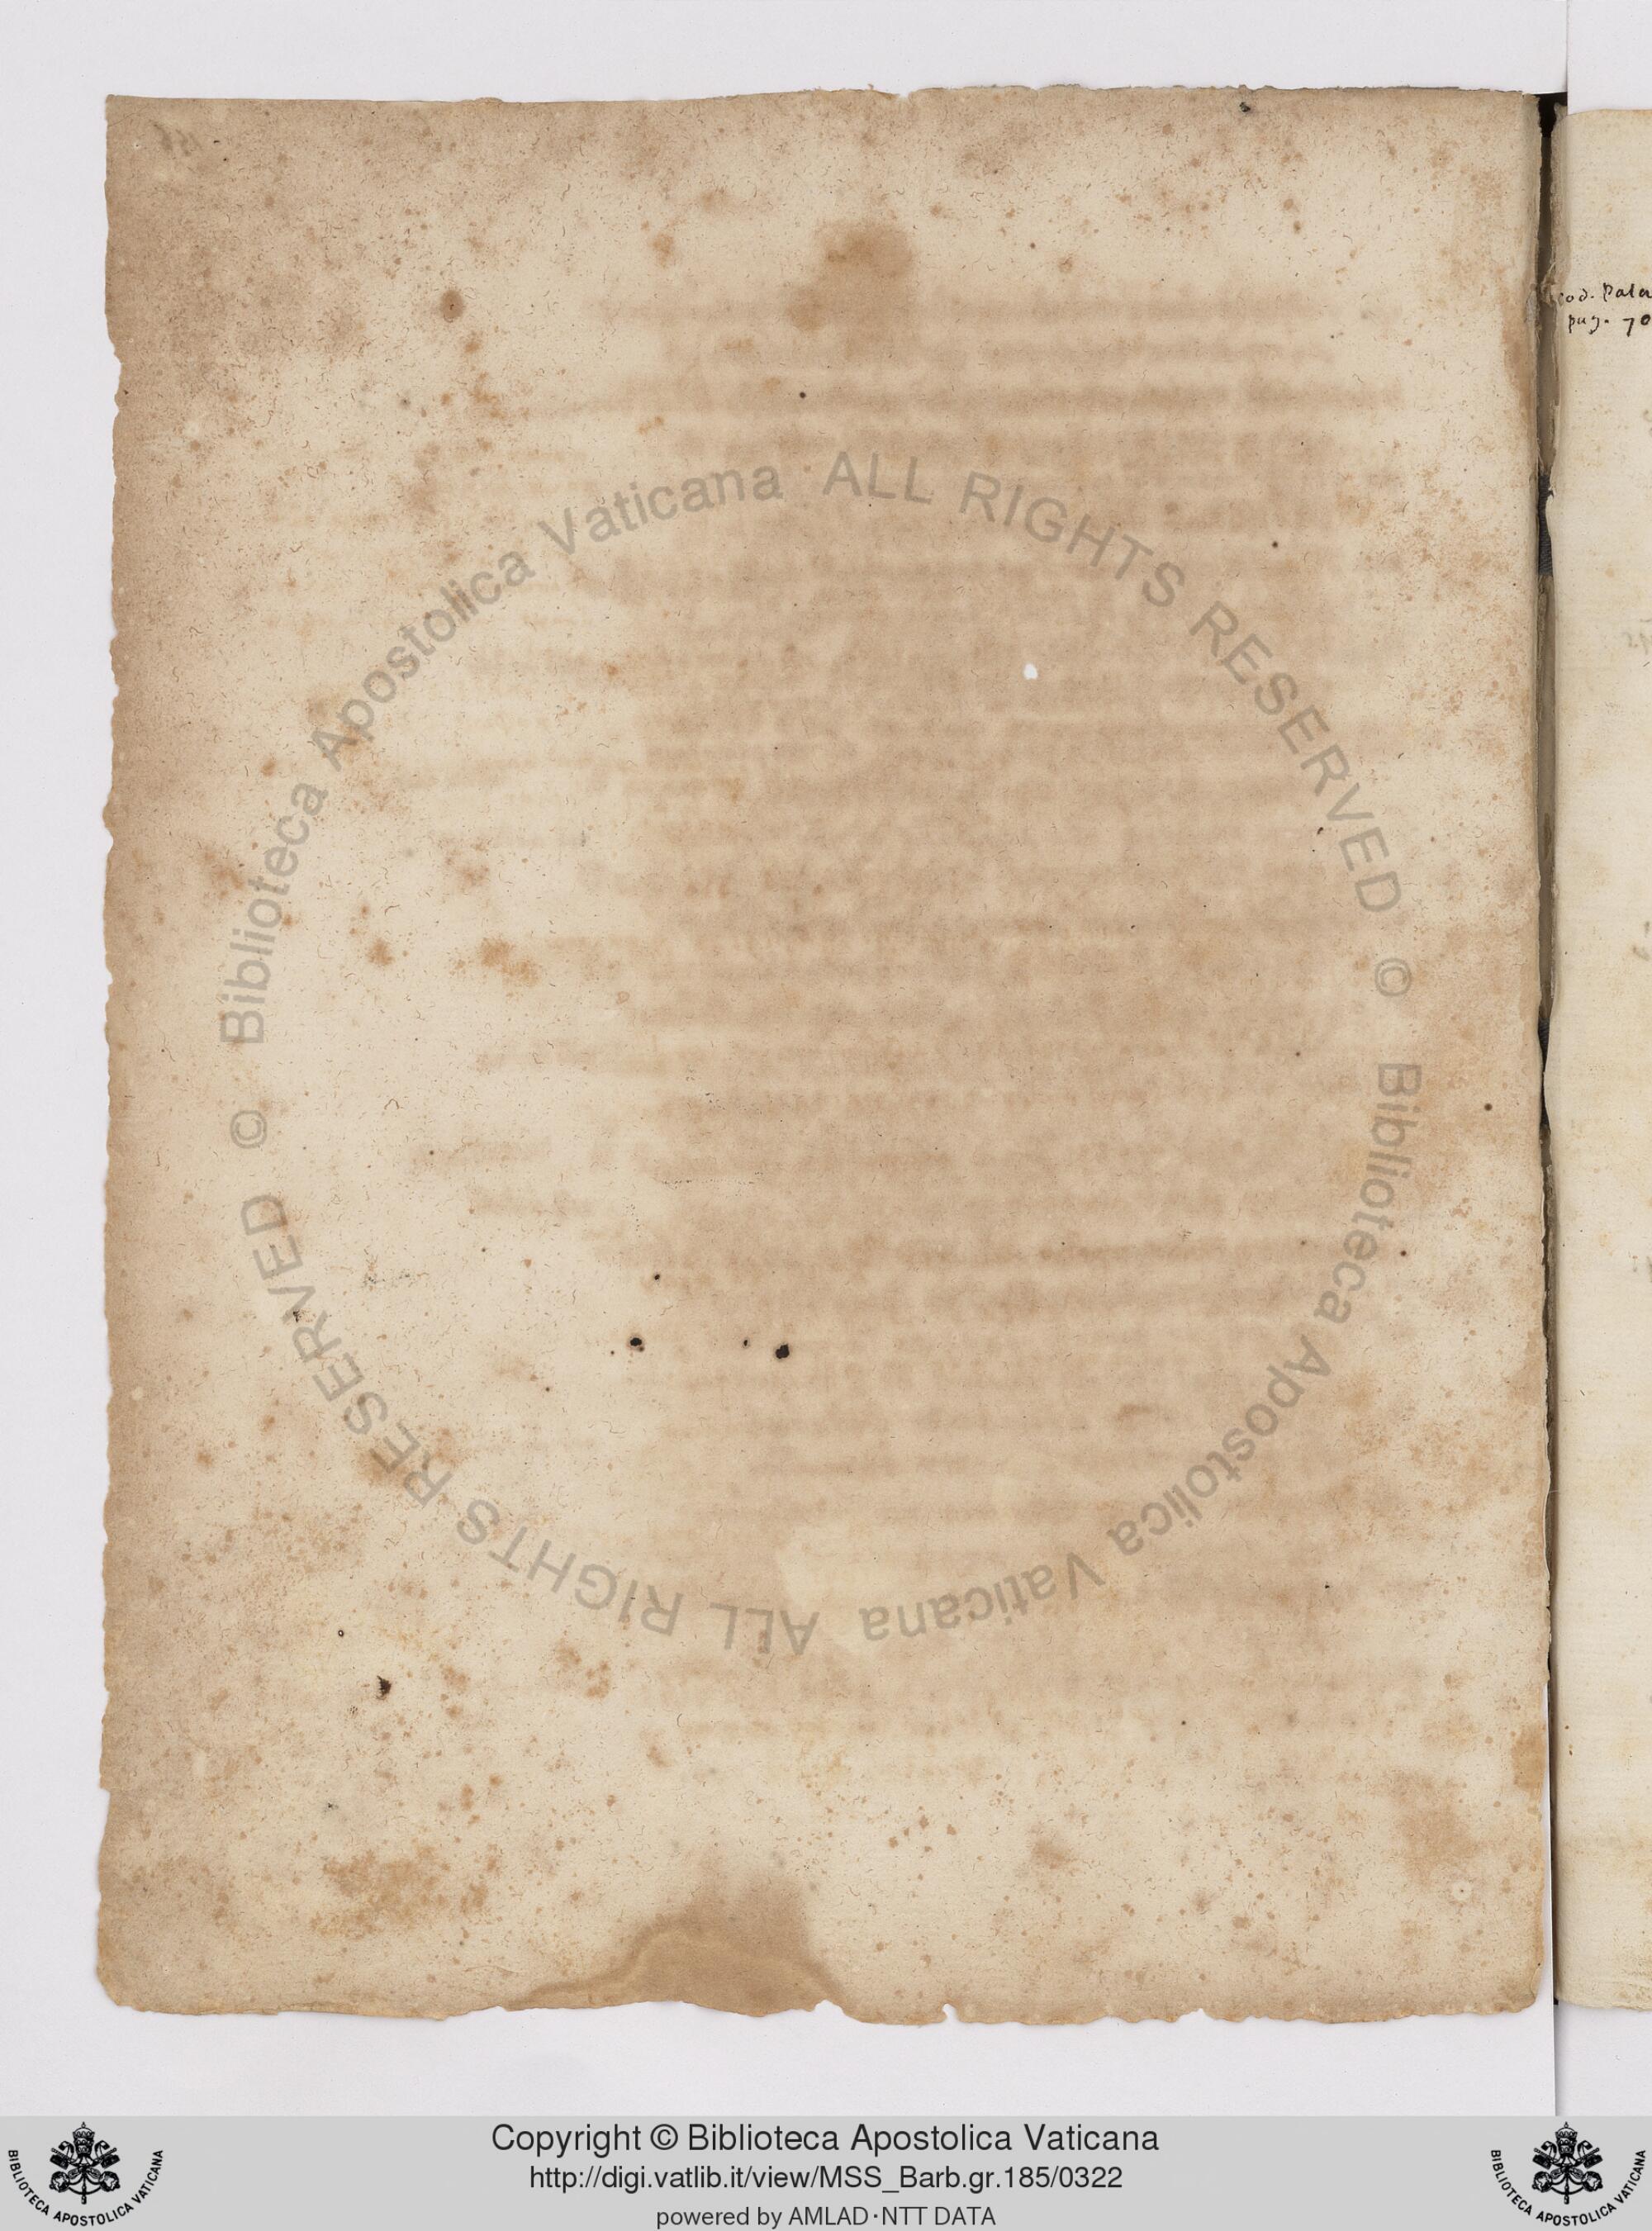 cod. Pala
pag. 70
© Biblioteca Apostolica Vaticana ALL RIGHTS RESERVED
© Biblioteca Apostolica Vaticana ALL RIGHTS RESERVED
Copyright © Biblioteca Apostolica Vaticana
http://digi.vatlib.it/view/MSS_Barb.gr.185/0322
powered by AMLAD·NTT DATA
BIBLIOTECA APOSTOLICA VATICANA
BIBLIOTECA APOSTOLICA VATICANA